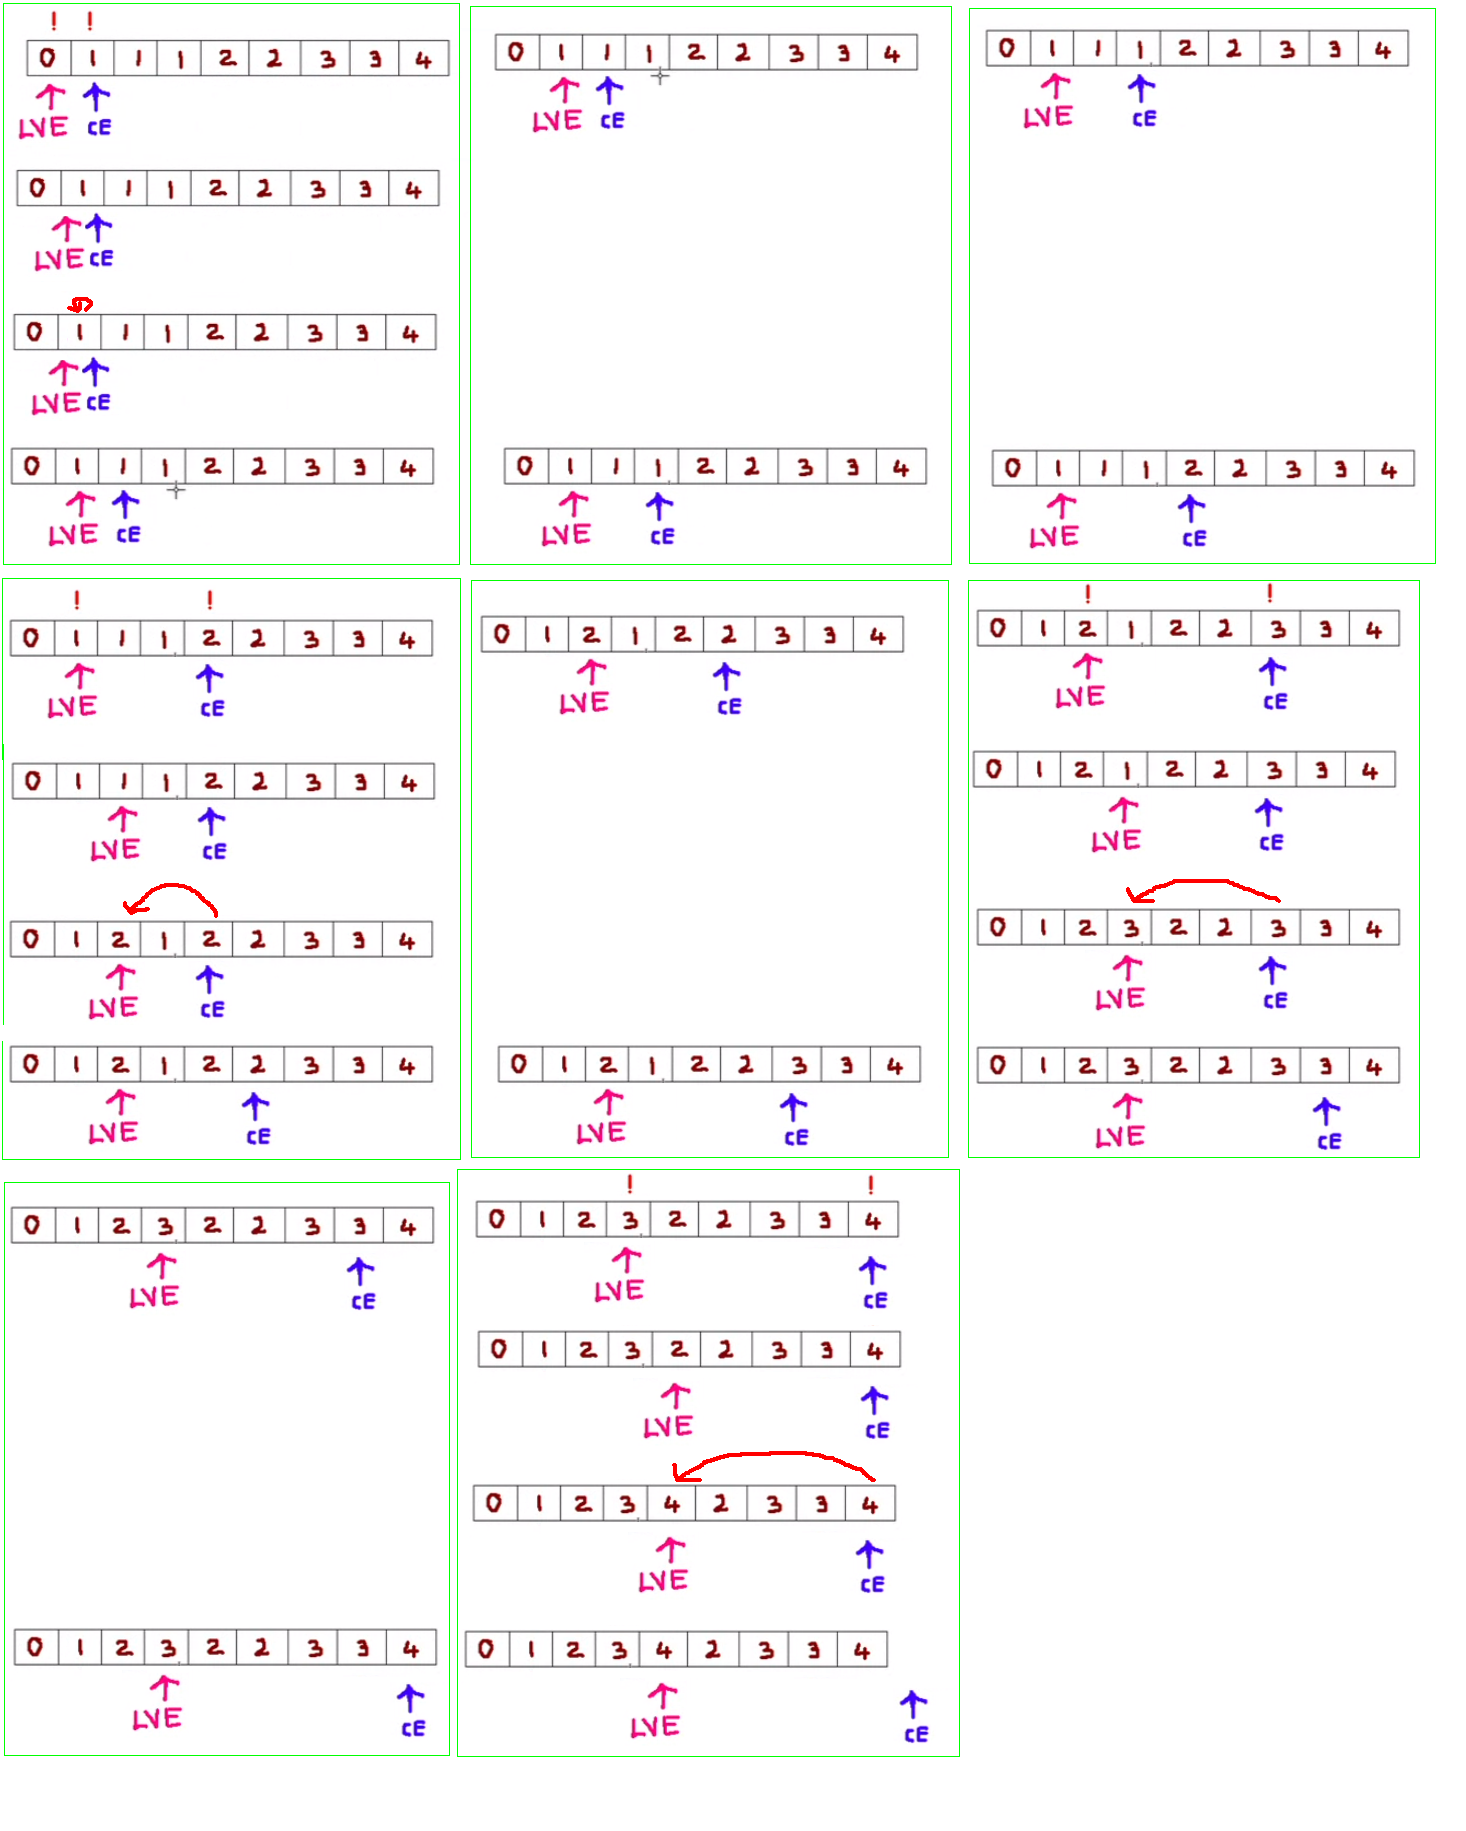 ! !
0 1 1 1 2 2 3 3 4
LVE CE
0 1 1 1 2 2 3 3 4
LVE CE
0 1 1 1 2 2 3 3 4
LVE CE
0 1 1 1 2 2 3 3 4
LVE CE
0 1 1 1 2 2 3 3 4
LVE CE
0 1 1 1 2 2 3 3 4
LVE CE
0 1 1 1 2 2 3 3 4
LVE CE
0 1 1 1 2 2 3 3 4
LVE CE
! !
0 1 1 1 2 2 3 3 4
LVE CE
0 1 1 1 2 2 3 3 4
LVE CE
0 1 2 1 2 2 3 3 4
LVE CE
0 1 2 1 2 2 3 3 4
LVE CE
0 1 2 1 2 2 3 3 4
LVE CE
0 1 2 1 2 2 3 3 4
LVE CE
! !
0 1 2 1 2 2 3 3 4
LVE CE
0 1 2 1 2 2 3 3 4
LVE CE
0 1 2 3 2 2 3 3 4
LVE CE
0 1 2 3 2 2 3 3 4
LVE CE
0 1 2 3 2 2 3 3 4
LVE CE
0 1 2 3 2 2 3 3 4
LVE CE
! !
0 1 2 3 2 2 3 3 4
LVE CE
0 1 2 3 2 2 3 3 4
LVE CE
0 1 2 3 4 2 3 3 4
LVE CE
0 1 2 3 4 2 3 3 4
LVE CE